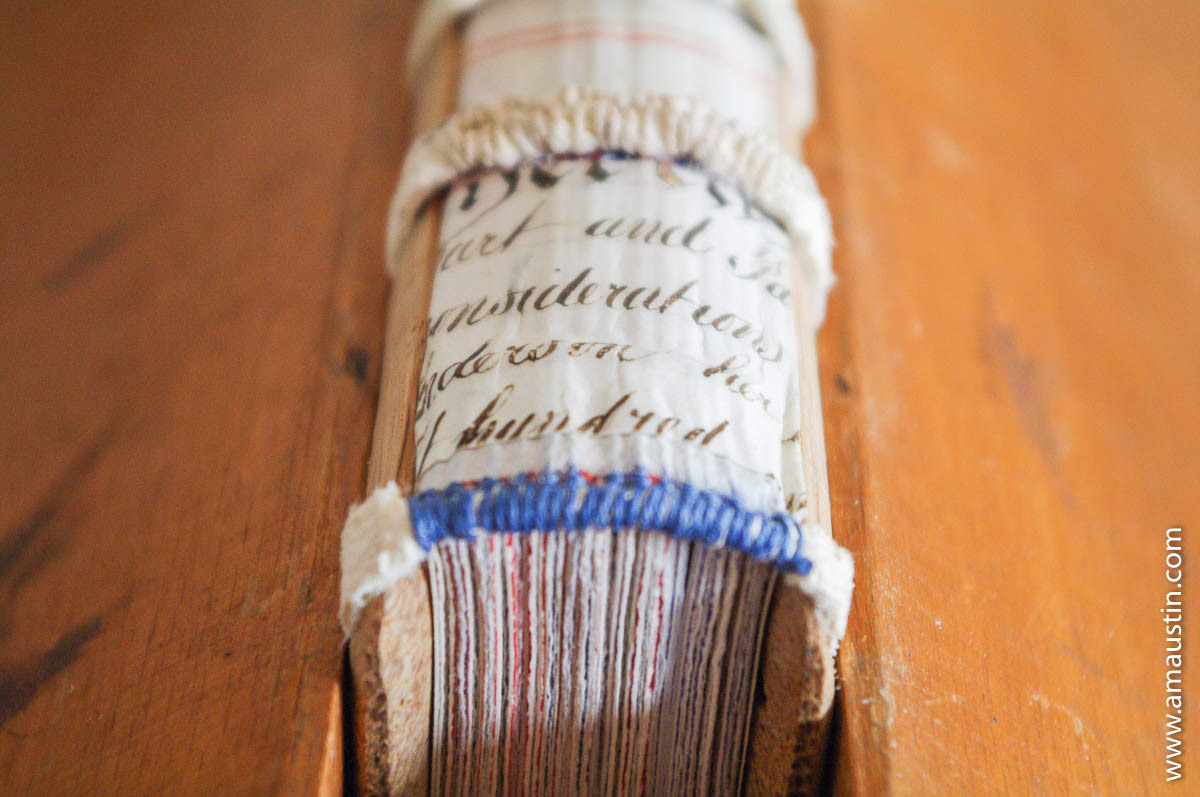 art and
considerations
nderson her
hundred
www.amaustin.com